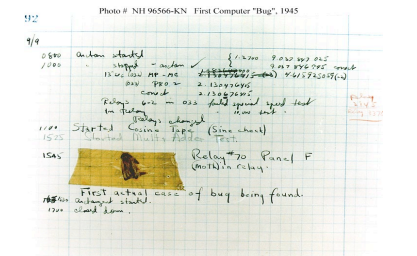 Photo # NH 96566-KN First Computer "Bug", 1945
92
9/9
0800 antan started
1000 " stopped - antan ✓ { 1.2700 9.037 847 025
9.037 846 995 correct
13" uc (032) MP - MC 4.615925059(-2)
(033) PRO 2 2.130476415
correct 2.130676415
Relays 6-2 in 033 failed special speed test
in Relay " 10.000 test.
Relays changed
1100 Started Cosine Tape (Sine check)
1525 Started Multi Adder Test.
1545 Relay #70 Panel F
(moth) in relay.
First actual case of bug being found.
antangent started.
1700 closed down.